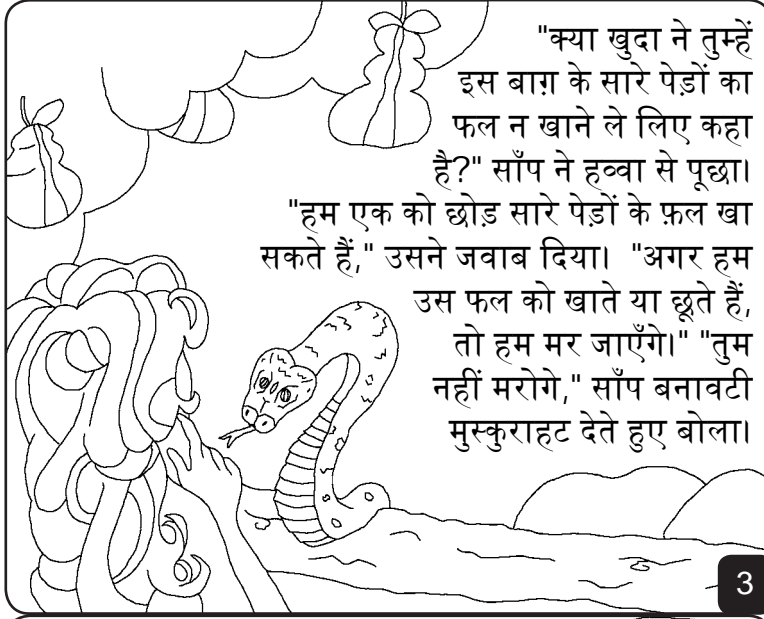 "क्या खुदा ने तुम्हें
इस बाग़ के सारे पेड़ों का
फल न खाने ले लिए कहा
है?" साँप ने हव्वा से पूछा।
"हम एक को छोड़ सारे पेड़ों के फ़ल खा
सकते हैं," उसने जवाब दिया।  "अगर हम
उस फल को खाते या छूते हैं,
तो हम मर जाएँगे।" "तुम
नहीं मरोगे," साँप बनावटी
मुस्कुराहट देते हुए बोला।
3